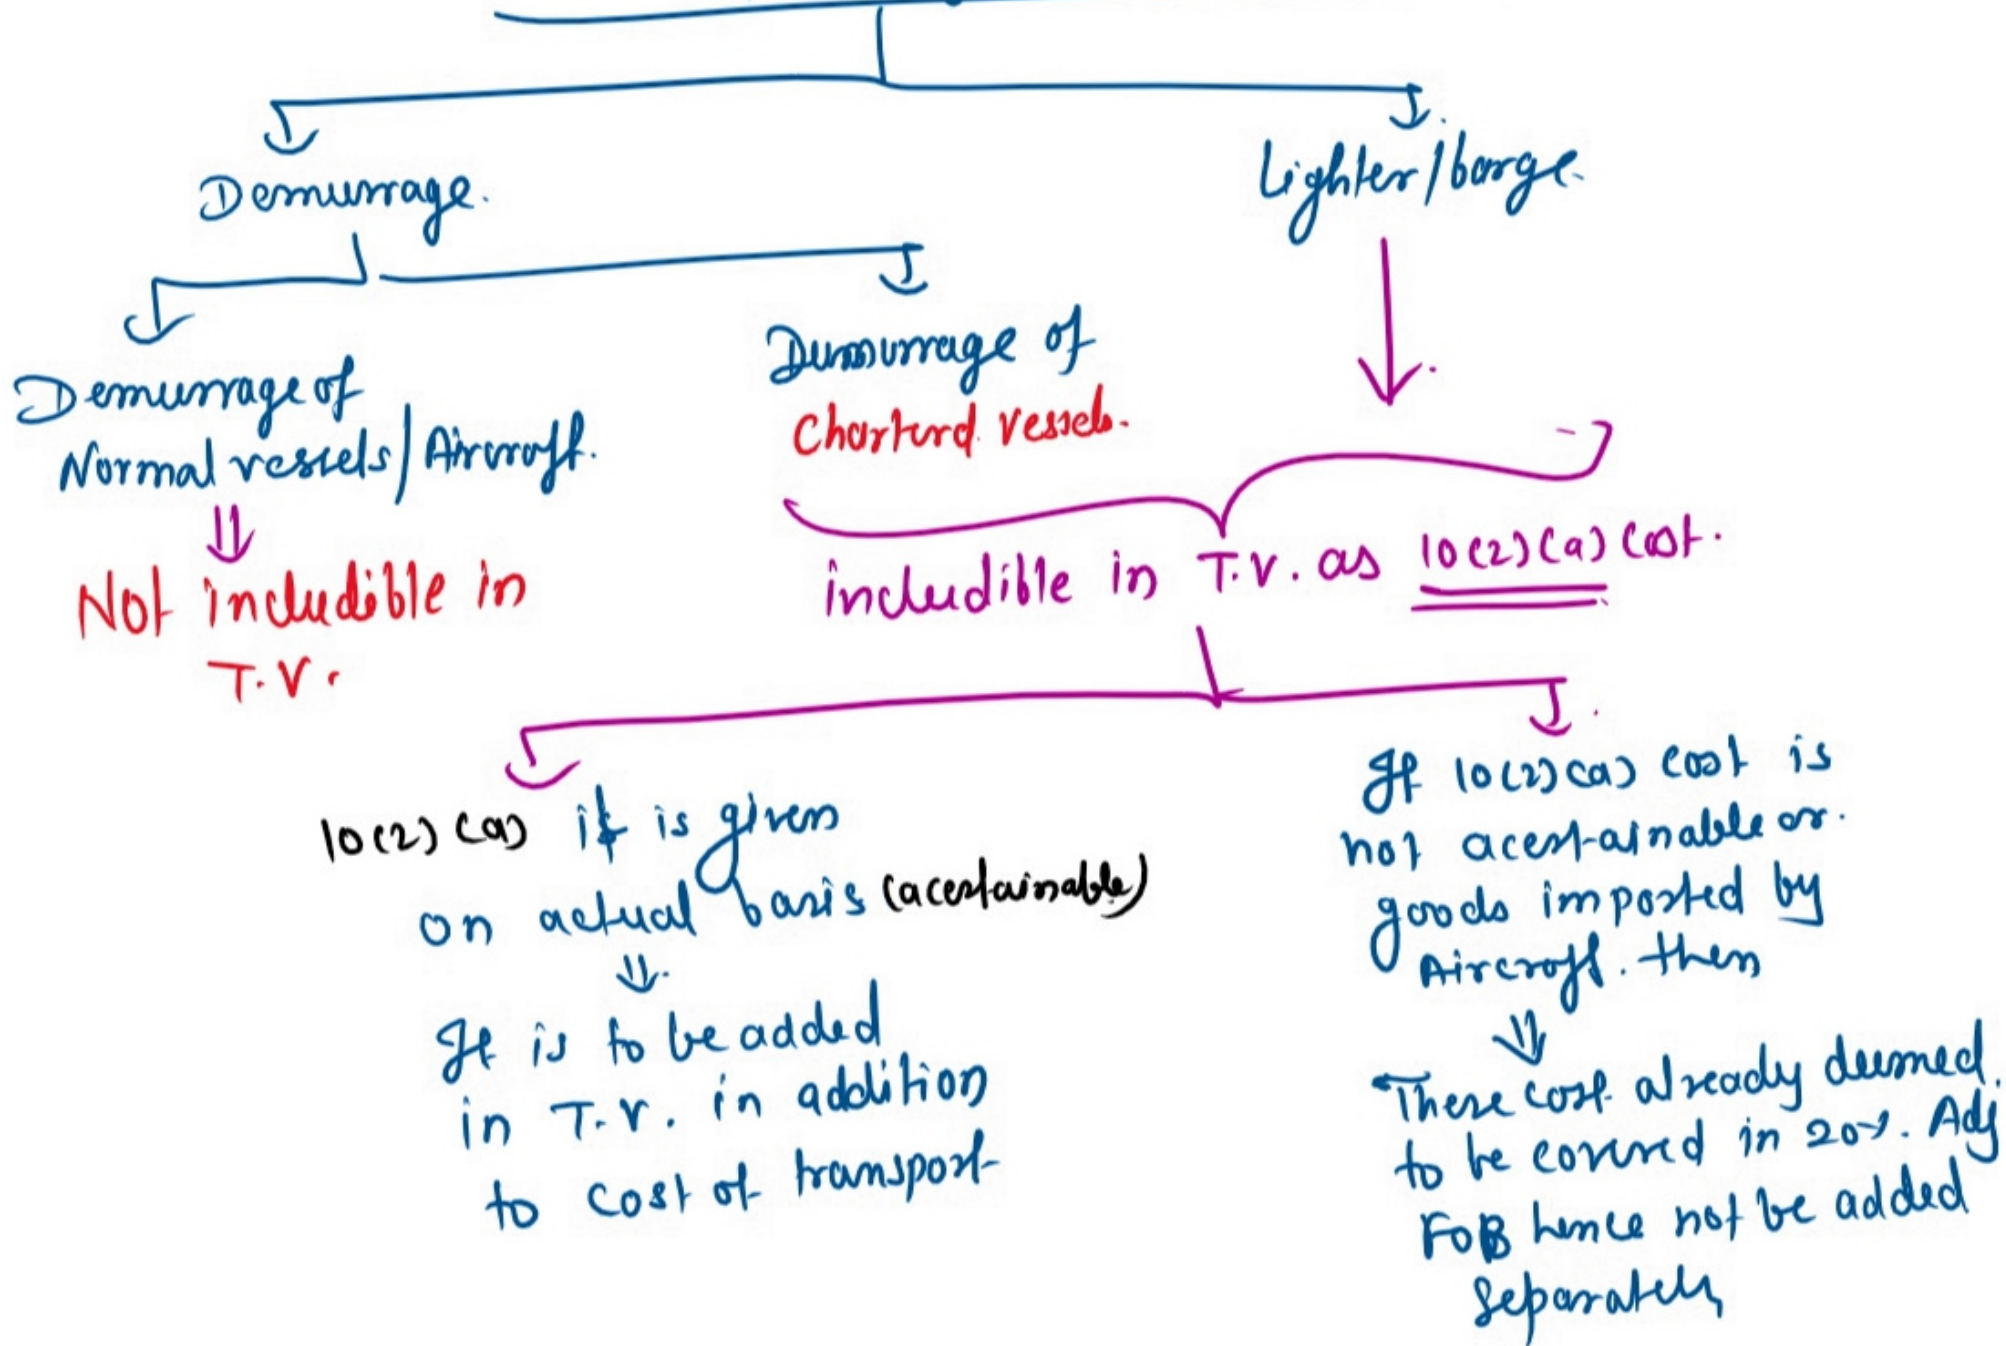 Demurrage.
Lighter/barge.
Demurrage of
Normal vessels/Aircraft.
Not includible in
T.V.
Dumurrage of
Charterd vessels.
includible in T.V. as 10(2)(a) cost.
10(2)(a) if is given
on actual basis (acertainable)
It is to be added
in T.V. in addition
to cost of transport
If 10(2)(a) cost is
not acertainable or
goods imported by
Aircraft. then
These cost already deemed
to be covered in 20%. Adj
FOB hence not be added
separately